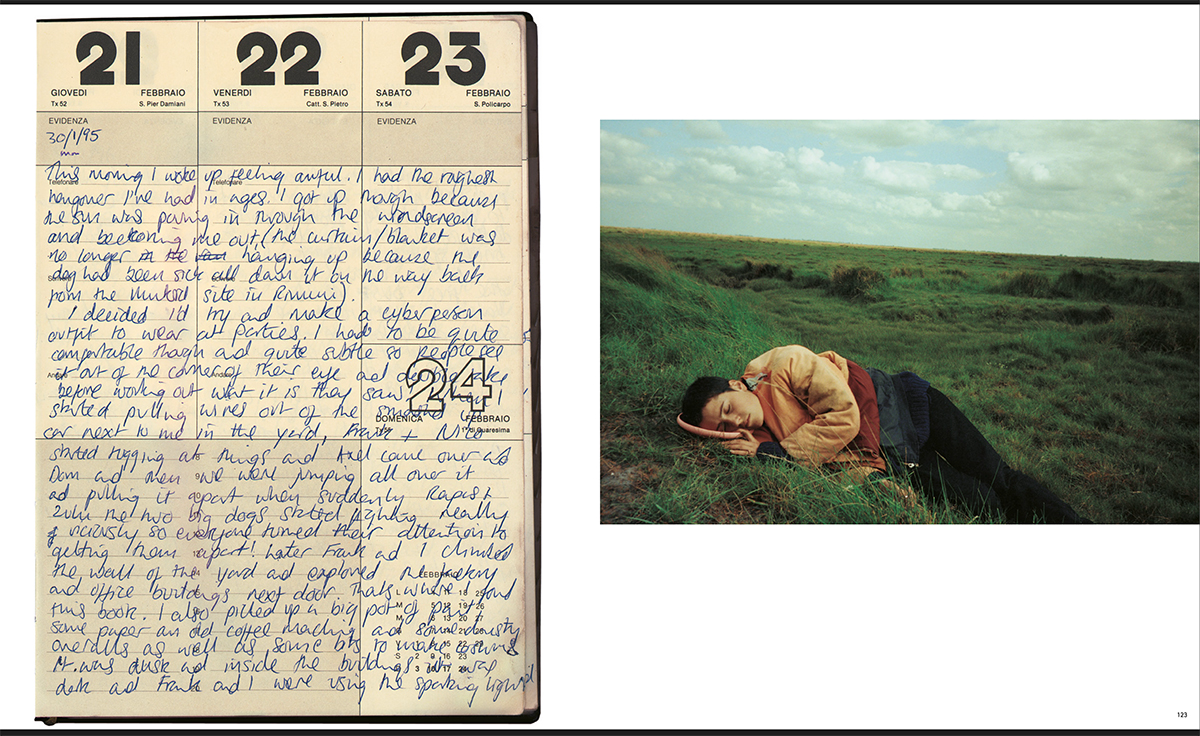 21
GIOVEDI FEBBRAIO
Tx 52 S. Pier Damiani
22
VENERDI FEBBRAIO
Tx 53 Catt. S. Pietro
23
SABATO FEBBRAIO
Tx 54 S. Policarpo
EVIDENZA
EVIDENZA
EVIDENZA
30/1/95
mon
Telefonare
Telefonare
This morning I woke up feeling awful. I had the roughest
hangover I've had in ages. I got up though because
the sun was pouring in through the windscreen
and beckoning me out, (the curtain/blanket was
no longer in the hanging up because the
dog had been sick all down it on the way back
from the Mutoid site in Rimini).
I decided I'd try and make a cyberperson
outfit to wear at parties. I had to be quite
comfortable though and quite subtle so people see
it out of the corner of their eye and double take
before working out what it is they saw. When I
started pulling wires out of the smashed up
car next to me in the yard, Frank + Nico
24
DOMENICA FEBBRAIO
1ª di Quaresima
started tugging at things and came over
Dom and then we were jumping all over it
ad pulling it apart when suddenly Rapist
Zulu the two big dogs started fighting really
viciously so everyone turned their attention to
getting them apart! Later Frank ad I climbed
the wall of the yard ad explored the factory
and office buildings next door. Thats where I found
this book. I also picked up a big pot of paint
some paper an old coffee machine and some dusty
overalls as well as some bits to make costumes
It was dusk ad inside the buildings it was
dark ad Frank and I were using the sparking lighter
FEBBRAIO
123